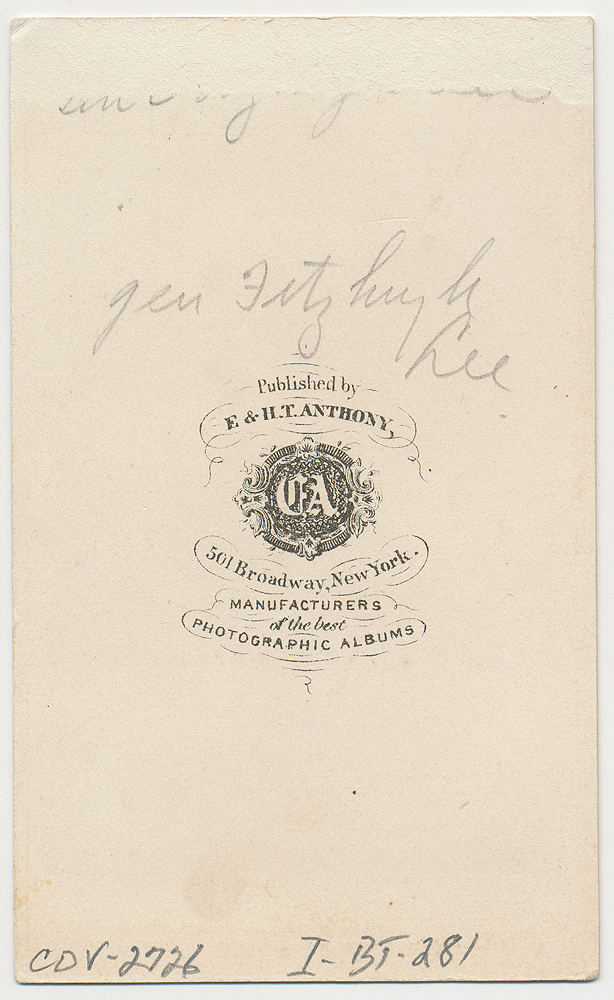 gen Fitzhugh
Lee
Published by
E & H.T. ANTHONY,
EA
501 Broadway, New York.
MANUFACTURERS
of the best
PHOTOGRAPHIC ALBUMS
CDV-2726 I-BT-281